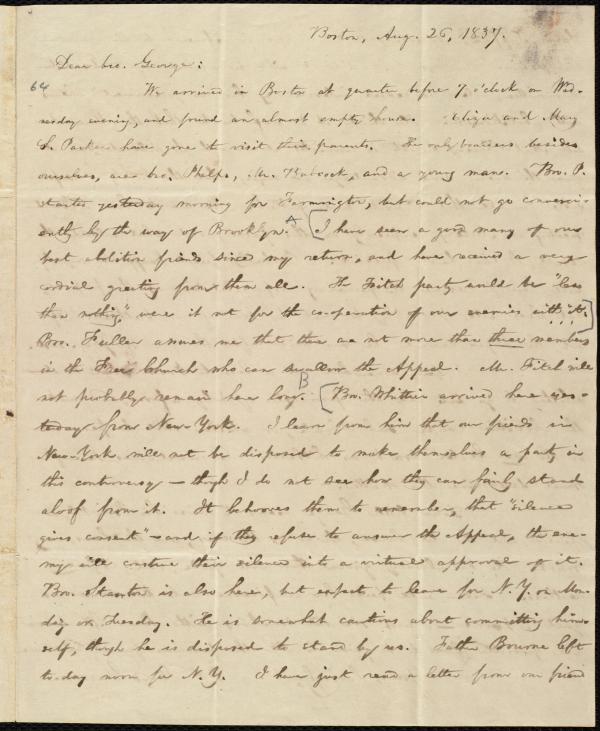 Boston, Aug. 26, 1837.
Dear bro. George:
64
We arrived in Boston at quarter before 7 o'clock on Wed-
nesday evening, and found an almost empty house. Eliza and Mary
S. Parker have gone to visit their parents. The only boarders besides
ourselves, are bro. Phelps, Mr. Babcock, and a young man. Bro. P.
started yesterday morning for Farmington, but could not go conveni-
ently by the way of Brooklyn. A [I have seen a good many of our
best abolition friends since my return, and have received a very
cordial greeting from them all. The Fitch party would be "less
than nothing," were it not for the co-operation of our enemies with it.]
Bro. Fuller assures me that there are not more than three members
in the Free Church who can swallow the Appeal. Mr. Fitch will
not probably remain here long. B [Bro. Whittier arrived here yes-
terday from New-York. I learn from him that our friends in
New-York will not be disposed to make themselves a party in
this controversy — though I do not see how they can fairly stand
aloof from it. It behooves them to remember, that "silence
gives consent" — and if they refuse to answer the Appeal, the ene-
my will construe their silence into a virtual approval of it.
Bro. Stanton is also here, but expects to leave for N. Y. on Mon-
day or Tuesday. He is somewhat cautious about committing him-
self, though he is disposed to stand by us. Father Bourne left
to-day noon for N. Y. I have just read a letter from our friend